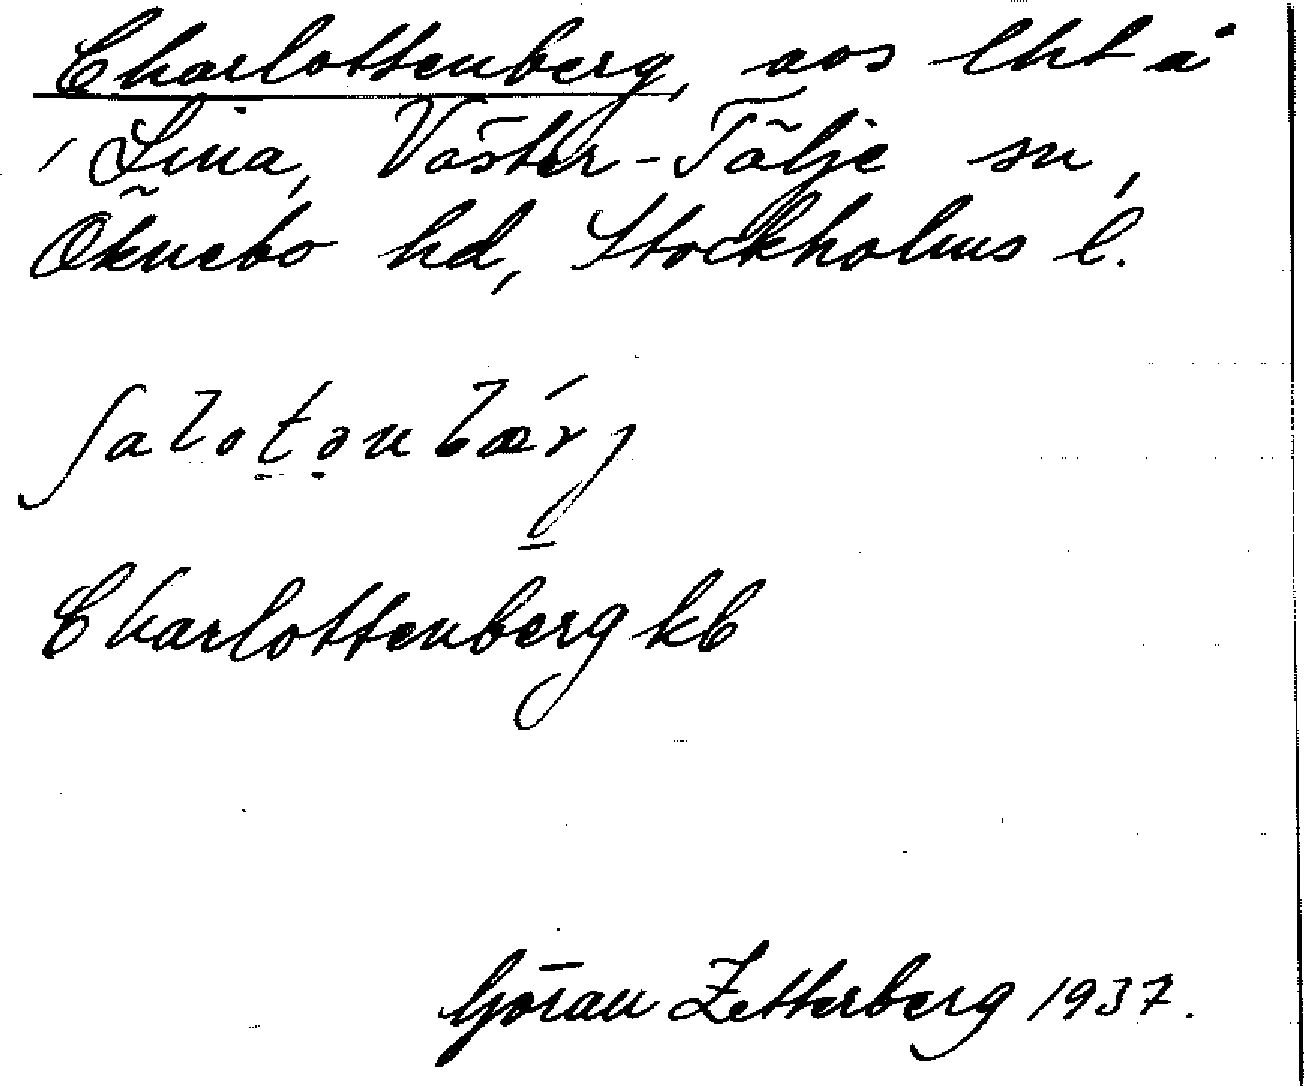 Charlottenberg, aos lht å
Lina, Väster-Tälje sn,
Öknebo hd, Stockholms l.
ʃalotənbærj
Charlottenberg kb
Göran Zetterberg 1937.